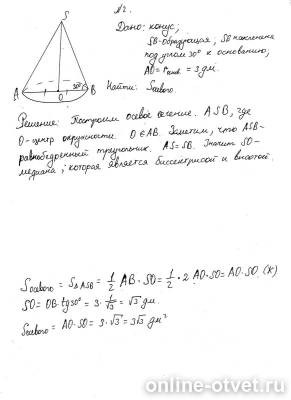 №2.
Дано: конус;
SB-образующая; SB наклонена
под углом 30° к основанию;
AO = r = 3 дм.
Найти: Sсевого
S
30°
A
O
B
Решение: Построим осевое сечение. ASB, где
O-центр окружности. O∈AB. Заметим, что ASB-
равнобедренный треугольник. AS=SB. Значит SO-
медиана, которая является биссектрисой и высотой.
Sосевого = S△ASB = 1/2 AB · SO = 1/2 · 2 AO · SO = AO · SO. (*)
SO = OB · tg30° = 3 · 1/√3 = √3 дм.
Sосевого = AO · SO = 3 · √3 = 3√3 дм²
online-otvet.ru